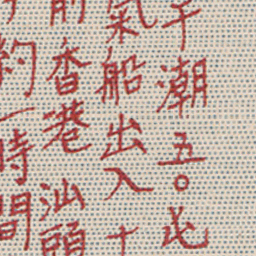 潮五〇
氣船出入十
前香港汕頭
約一時間